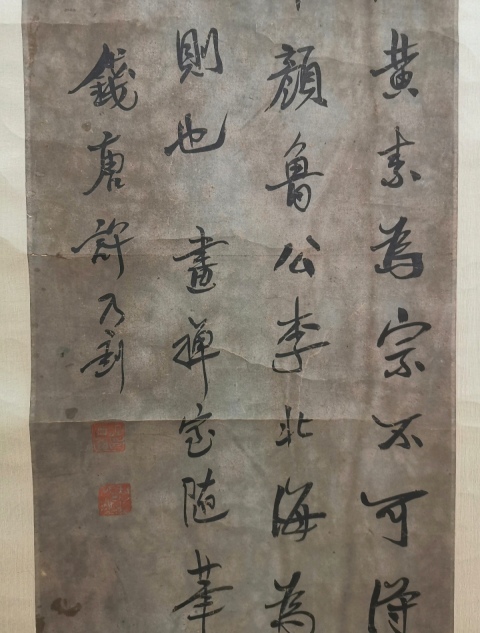 黄素為宗不可得
顏魯公李北海為
則也 畫禪室隨筆
錢唐許乃釗